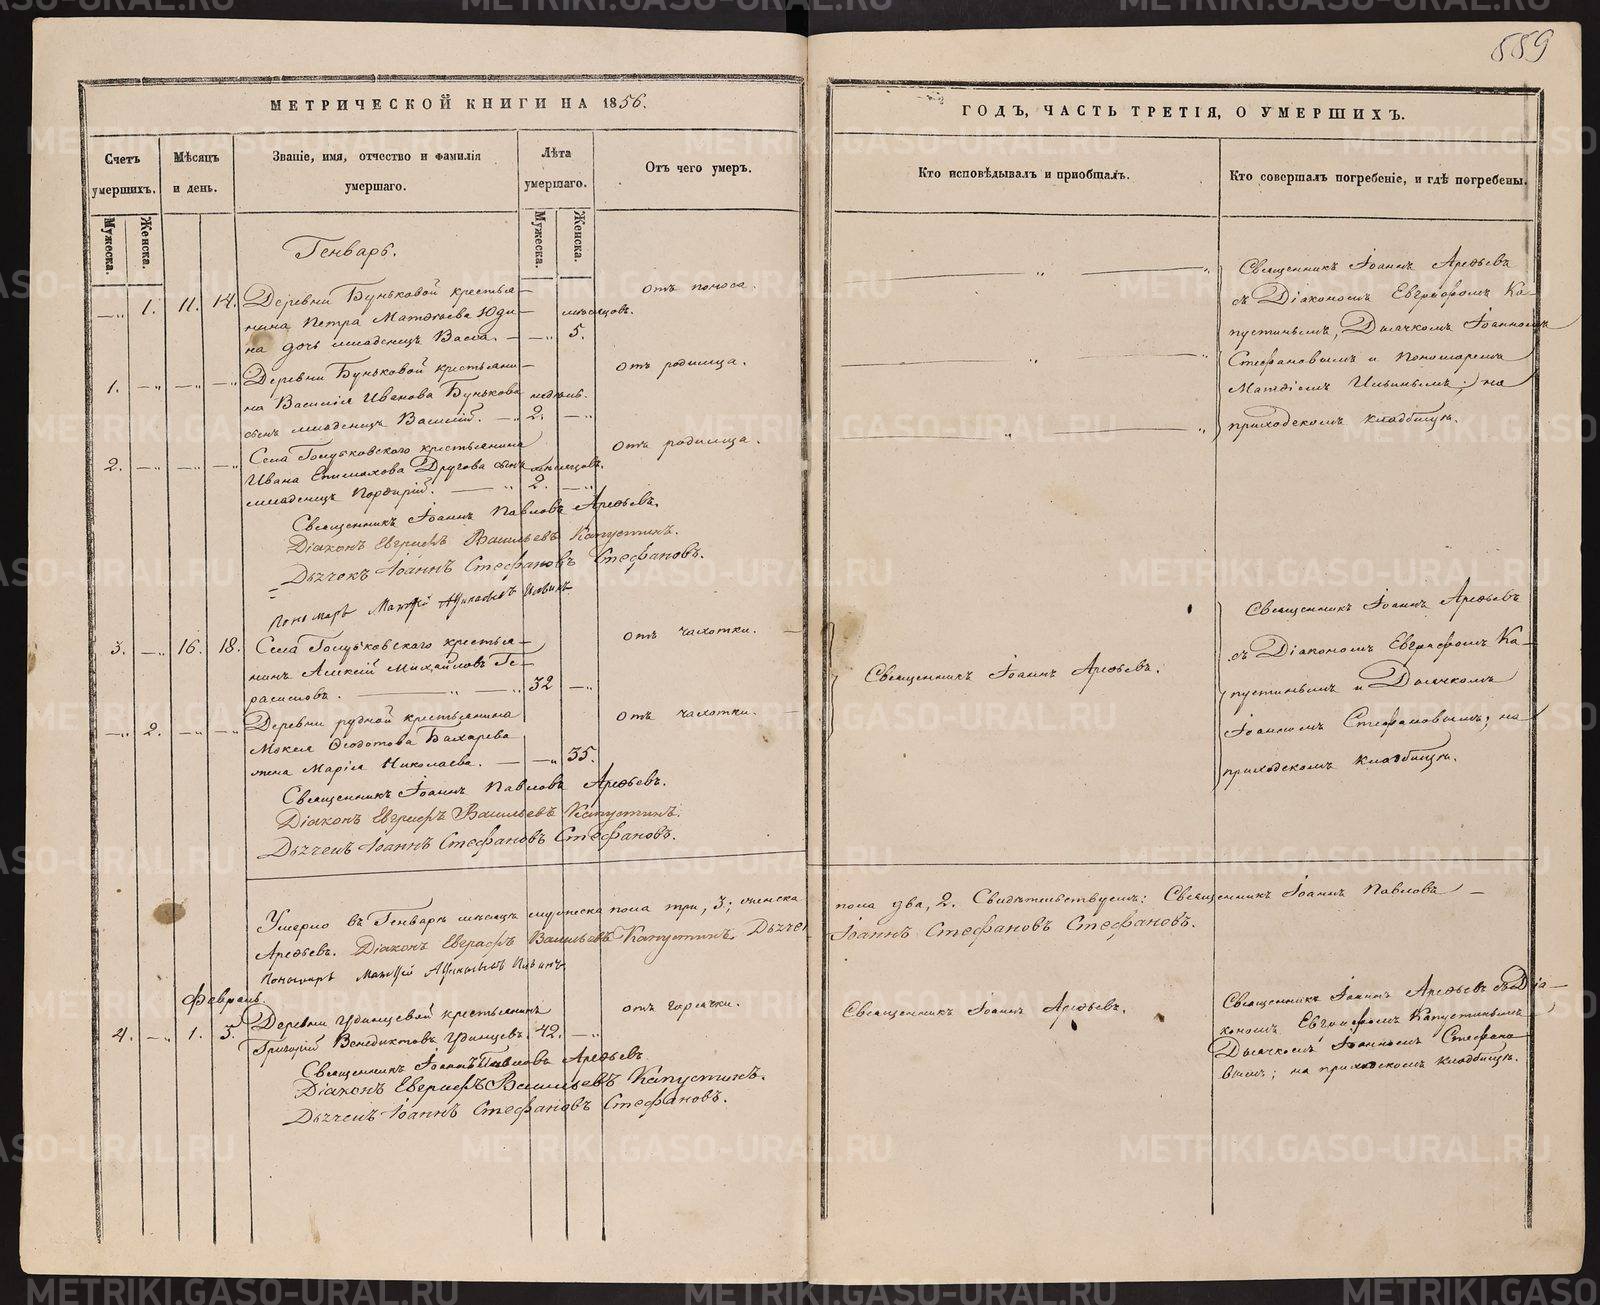 889
МЕТРИЧЕСКОЙ КНИГИ НА 1856.
ГОДЪ, ЧАСТЬ ТРЕТІЯ, О УМЕРШИХЪ.
Счетъ умершихъ.
Мѣсяцъ и день.
Званіе, имя, отчество и фамилія умершаго.
Лѣта умершаго.
Отъ чего умеръ.
Кто исповѣдывалъ и пріобщалъ.
Кто совершалъ погребеніе, и гдѣ погребены.
Мужеска.
Женска.
Мужеска.
Женска.
Генварь.
1. 11. 14. Деревни Буньковой крестья-
нина Петра Матвѣева Юди-
на дочь младенецъ Васса.
мѣсяцовъ.
5.
отъ поноса.
Священникъ Іоаннъ Арефьевъ
съ Діакономъ Евграфомъ Ка-
пустинымъ, Дьячкомъ Іоанномъ
Стефановымъ и Пономаремъ
Матѳіемъ Ильинымъ; на
приходскомъ кладбищѣ.
1. Деревни Буньковой крестьяни-
на Василія Иванова Бунькова
сынъ младенецъ Василій.
недѣль.
2.
отъ родимца.
2. Села Голубковского крестьянина
Ивана Епимахова Другова сынъ
младенецъ Порфирій.
мѣсяцовъ.
2.
отъ родимца.
Священникъ Іоаннъ Павловъ Арефьевъ.
Діаконъ Евграфъ Васильевъ Капустинъ.
Дьячекъ Іоаннъ Стефановъ Стефановъ.
Пономарь Матѳій
3. 16. 18. Села Голубковскаго крестья-
нинъ Алексій Михайловъ Ге-
расимовъ.
32
отъ чахотки.
Священникъ Іоаннъ Арефьевъ.
Священникъ Іоаннъ Арефьевъ
съ Діакономъ Евграфомъ Ка-
пустинымъ и Дьячкомъ
Іоанномъ Стефановымъ; на
приходскомъ кладбищѣ.
2. Деревни рудной крестьянина
Мокея Ѳеодотова Бахарева
жена Марія Николаева.
35.
отъ чахотки.
Священникъ Іоаннъ Павловъ Арефьевъ.
Діаконъ Евграфъ Васильевъ Капустинъ.
Дьячекъ Іоаннъ Стефановъ Стефановъ.
Умерло въ Генварѣ мѣсяцѣ мужеска пола три, 3; женска
пола два, 2. Свидѣтельствуемъ: Священникъ Іоаннъ Павловъ
Арефьевъ. Діаконъ Евграфъ Васильевъ Капустинъ. Дьячек
Іоаннъ Стефановъ Стефановъ.
Пономарь Матѳій
Февраль.
4. 1. 3. Деревни Удинцевой крестьянинъ
Григорій Венедиктовъ Удинцевъ. 42.
отъ горячки.
Священникъ Іоаннъ Арефьевъ.
Священникъ Іоаннъ Арефьевъ съ Діа-
кономъ Евграфомъ Капустинымъ
Дьячкомъ Іоанномъ Стефано-
вымъ; на приходскомъ кладбищѣ.
Священникъ Іоаннъ Павловъ Арефьевъ
Діаконъ Евграфъ Васильевъ Капустинъ.
Дьячекъ Іоаннъ Стефановъ Стефановъ.
METRIKI.GASO-URAL.RU